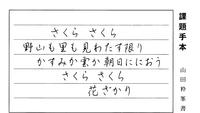 さくら さくら
野山も里も見わたす限り
かすみか雲か朝日ににおう
さくら さくら
花ざかり
課題手本
山田粋峯書